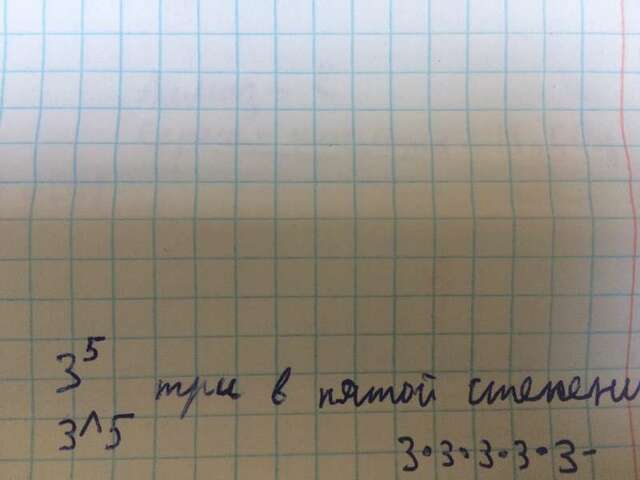 3⁵ три в пятой степени
3^5
3·3·3·3·3-